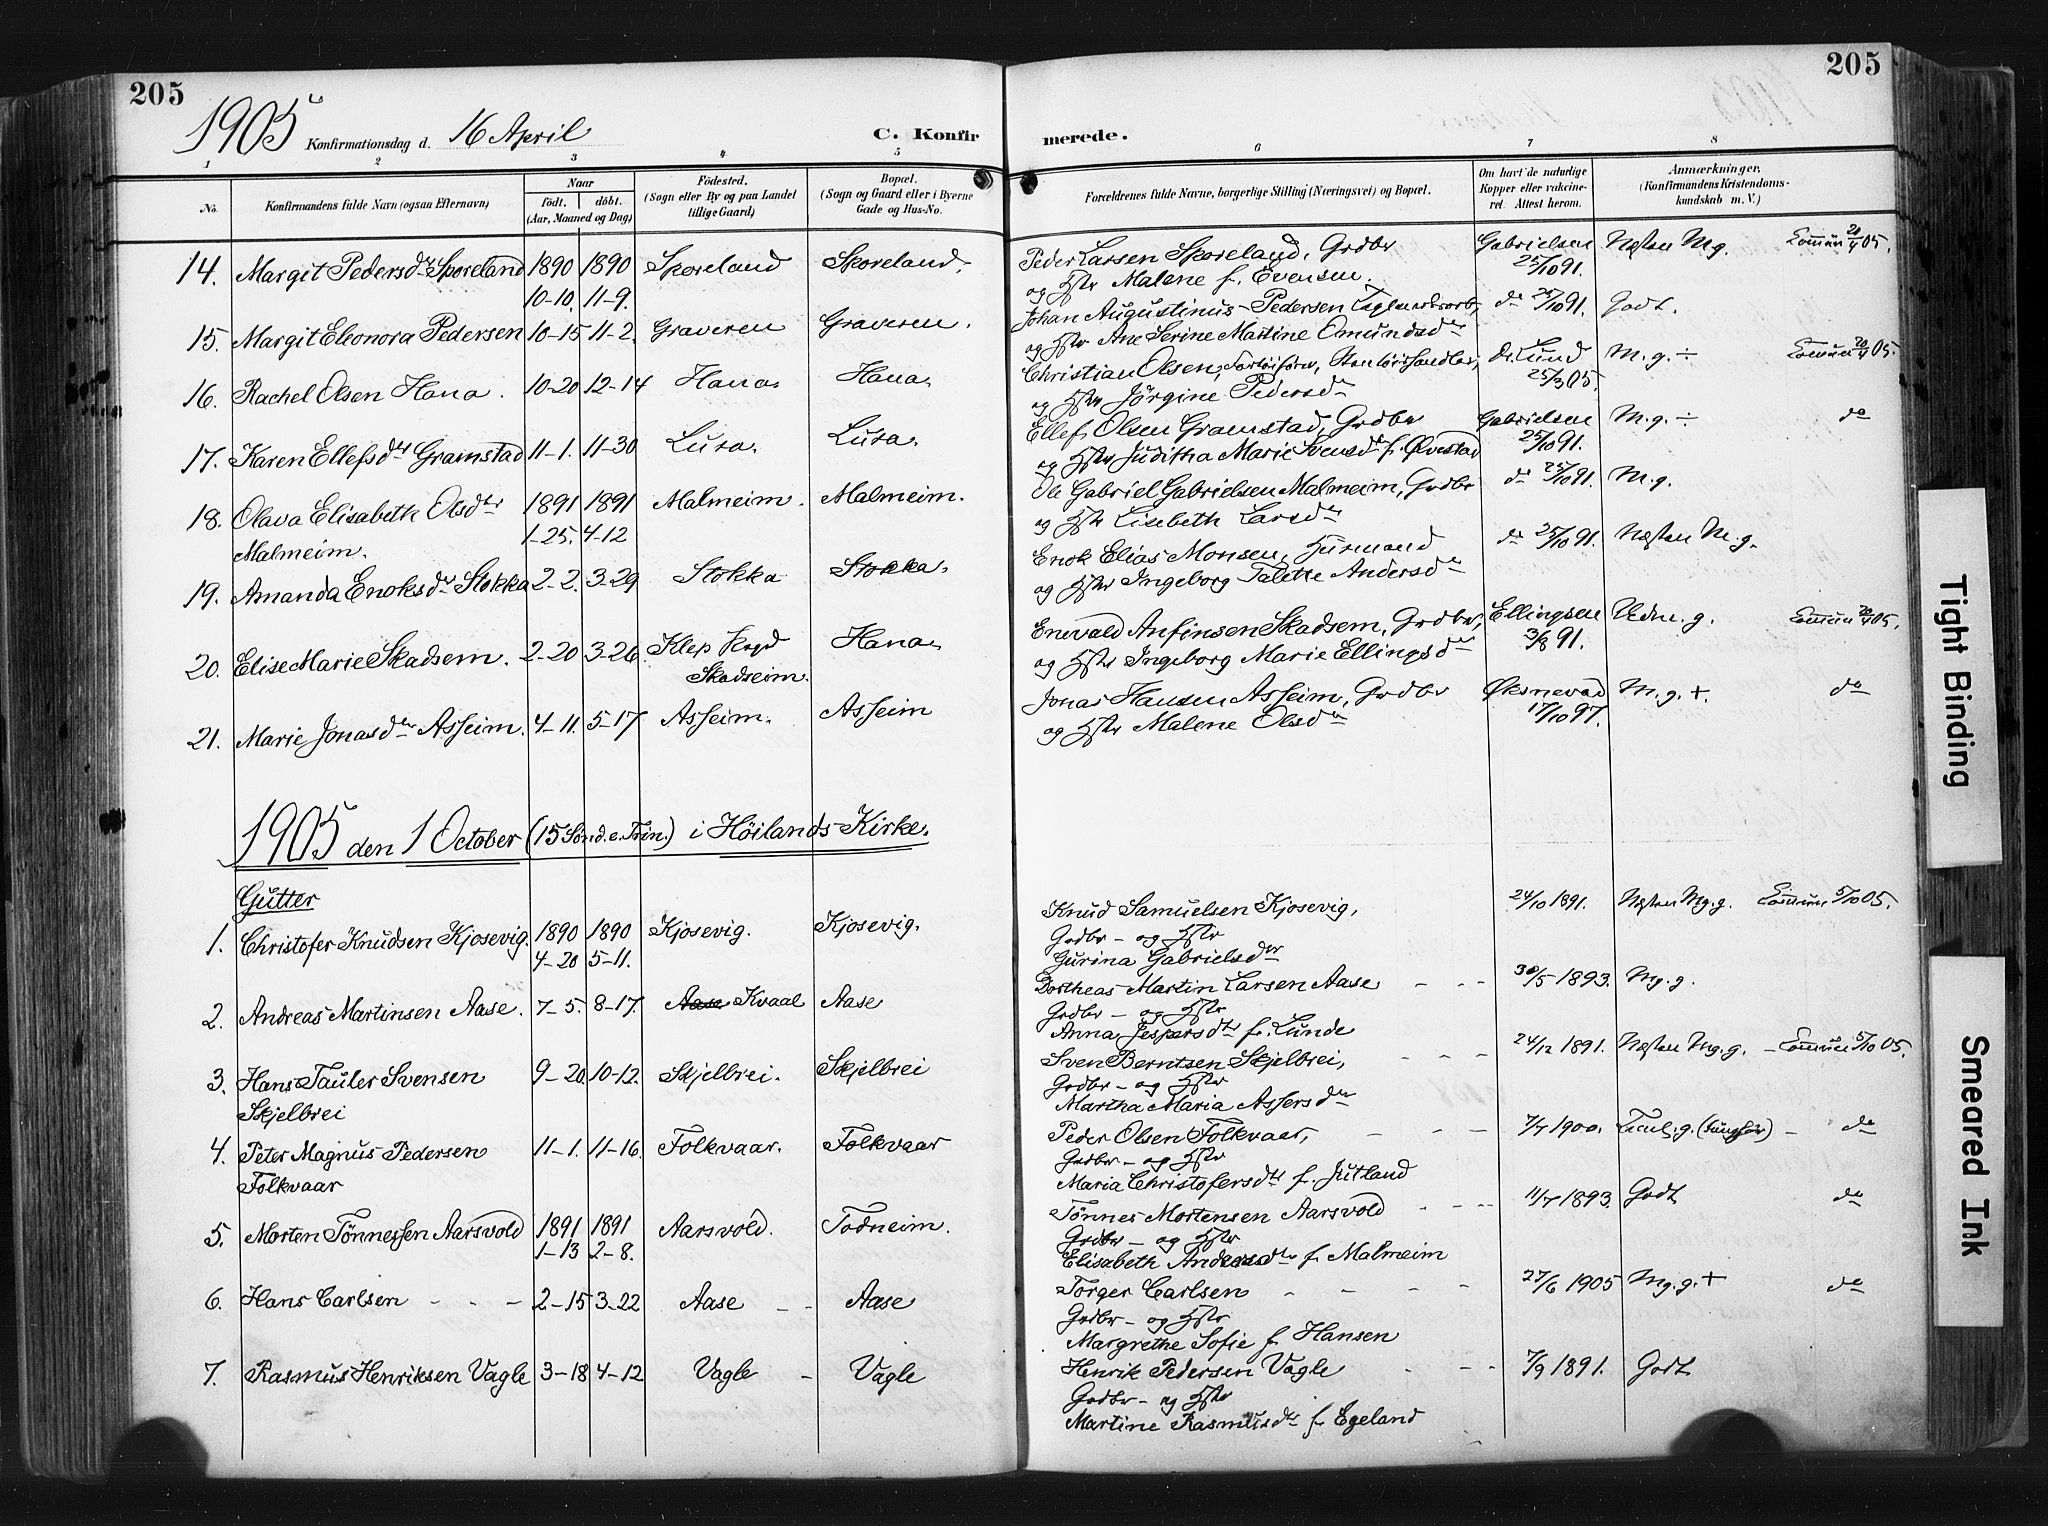 205
205
1905
Konfirmationsdag d. 16 April
C. Konfirmerede.
1 2 3 4 5 6 7 8
No.
Konfirmandens fulde Navn (ogsaa Efternavn)
Naar
födt. döbt.
(Aar, Maaned og Dag)
Födested.
(Sogn eller By og paa Landet
tillige Gaard)
Bopæl.
(Sogn og Gaard eller i Byerne
Gade og Hus-No.
Forældrenes fulde Navne, borgerlige Stilling (Næringsvei) og Bopæl.
Om havt de naturlige
Kopper eller vakcine-
ret. Attest herom.
Anmærkninger.
(Konfirmandens Kristendoms-
kundskab m. V.)
14. Margit Pedersdr Skoreland 1890 1890 Skoreland Skoreland. Peder Larsen Skoreland, Grdbr Gabrielsen Næsten M.g. 20/4 05.
10-10. 11-9. og Hstr Malene f. Evensen 25/10 91.
15. Margit Eleonora Pedersen 10-15 11-2. Graveren Graveren. Johan Augustinus Pedersen do 25/10 91. Godt.
og Hstr Ane Serine Martine Omundsdr
16. Rachel Olsen Hana. 10-20 12-14 Hana. Hana. Christian Olsen, Dr. Lund M.g. ÷ 20/4 05.
og Hstr Jörgine Pedersdr 25/3 05.
17. Karen Ellefsdtr Gramstad 11-1. 11-30 Lura. Lura. Ellef Olsen Gramstad, Grdbr Gabrielsen M.g. ÷ do
og Hstr Juditha Marie Svensdr f. Øvestad 25/10 91.
18. Olava Elisabeth Olsdtr 1891 1891 Malmeim. Malmeim. Ole Gabriel Gabrielsen Malmeim, Grdbr do 25/10 91. M.g.
Malmeim. 1-25. 4-12 og Hstr Lisebeth Larsdr
19. Amanda Enoksdr Stokka 2-2. 3-29 Stokka Stokka. Enok Elias Monsen, Husmand do 25/10 91. Næsten M.g.
og Hstr Ingeborg Talette Andersdr
20. Elise Marie Skadsem. 2-20 3-26 Klep Hana. Enevald Anfinsen Skadsem, Grdbr, Ellingsen 20/4 05.
Skadseim. og Hstr Ingeborg Marie Ellingsdr 3/8 91.
21. Marie Jonasdtr Asheim. 4-11. 5-17 Asheim. Asheim Jonas Hansen Asheim, Grdbr Øksnevad M.g. + do
og Hstr Malene Olsdr 17/10 97.
1905 den 1 October (15 Sønd. e. Trin.) i Höilands Kirke.
Gutter
1. Christofer Knudsen Kjosevig. 1890 1890 Kjosevig. Kjosevig. Knud Samuelsen Kjosevig, 24/10 1891. Næsten Mg.g. 5/10 05.
4-20 5-11. Grdbr - og Hstr
Gurina Gabrielsdtr
2. Andreas Martinsen Aase. 7-5. 8-17. Aase Kvaal Aase Dortheas Martin Larsen Aase 30/5 1893. Mg.g.
Grdbr - og Hstr
Anna Jespersdtr f. Lunde
3. Hans Tauler Svensen 9-20. 10-12. Skjelbrei. Skjelbrei Sven Berntsen Skjelbrei, 24/12 1891. Næsten Mg.g. - 5/10 05.
Skjelbrei Grdbr - og Hstr
Martha Maria Assersdtr
4. Peter Magnus Pedersen 11-1. 11-16. Folkvaar. Folkvaar Peder Olsen Folkvaar, 7/7 1900. do
Folkvaar Grdbr - og Hstr
Maria Christofersdtr f. Jutland
5. Morten Tönnessen Aarsvold 1891 1891 Aarsvold. Todneim. Tönnes Mortensen Aarsvold 11/7 1893. Godt do
1-13 2-8. Grdbr - og Hstr
Elisabeth Andersdtr f. Malmeim
6. Hans Carlsen 2-15 3-22 Aase Aase Torger Carlsen 27/6 1905 Mg.g. + do
Grdbr - og Hstr
Margrethe Sofie f. Hansen
7. Rasmus Henriksen Vagle 3-18 4-12 Vagle Vagle Henrik Pedersen Vagle 7/9 1891. Godt
Grdbr - og Hstr
Martine Rasmusdtr f. Egeland
Tight Binding
Smeared Ink